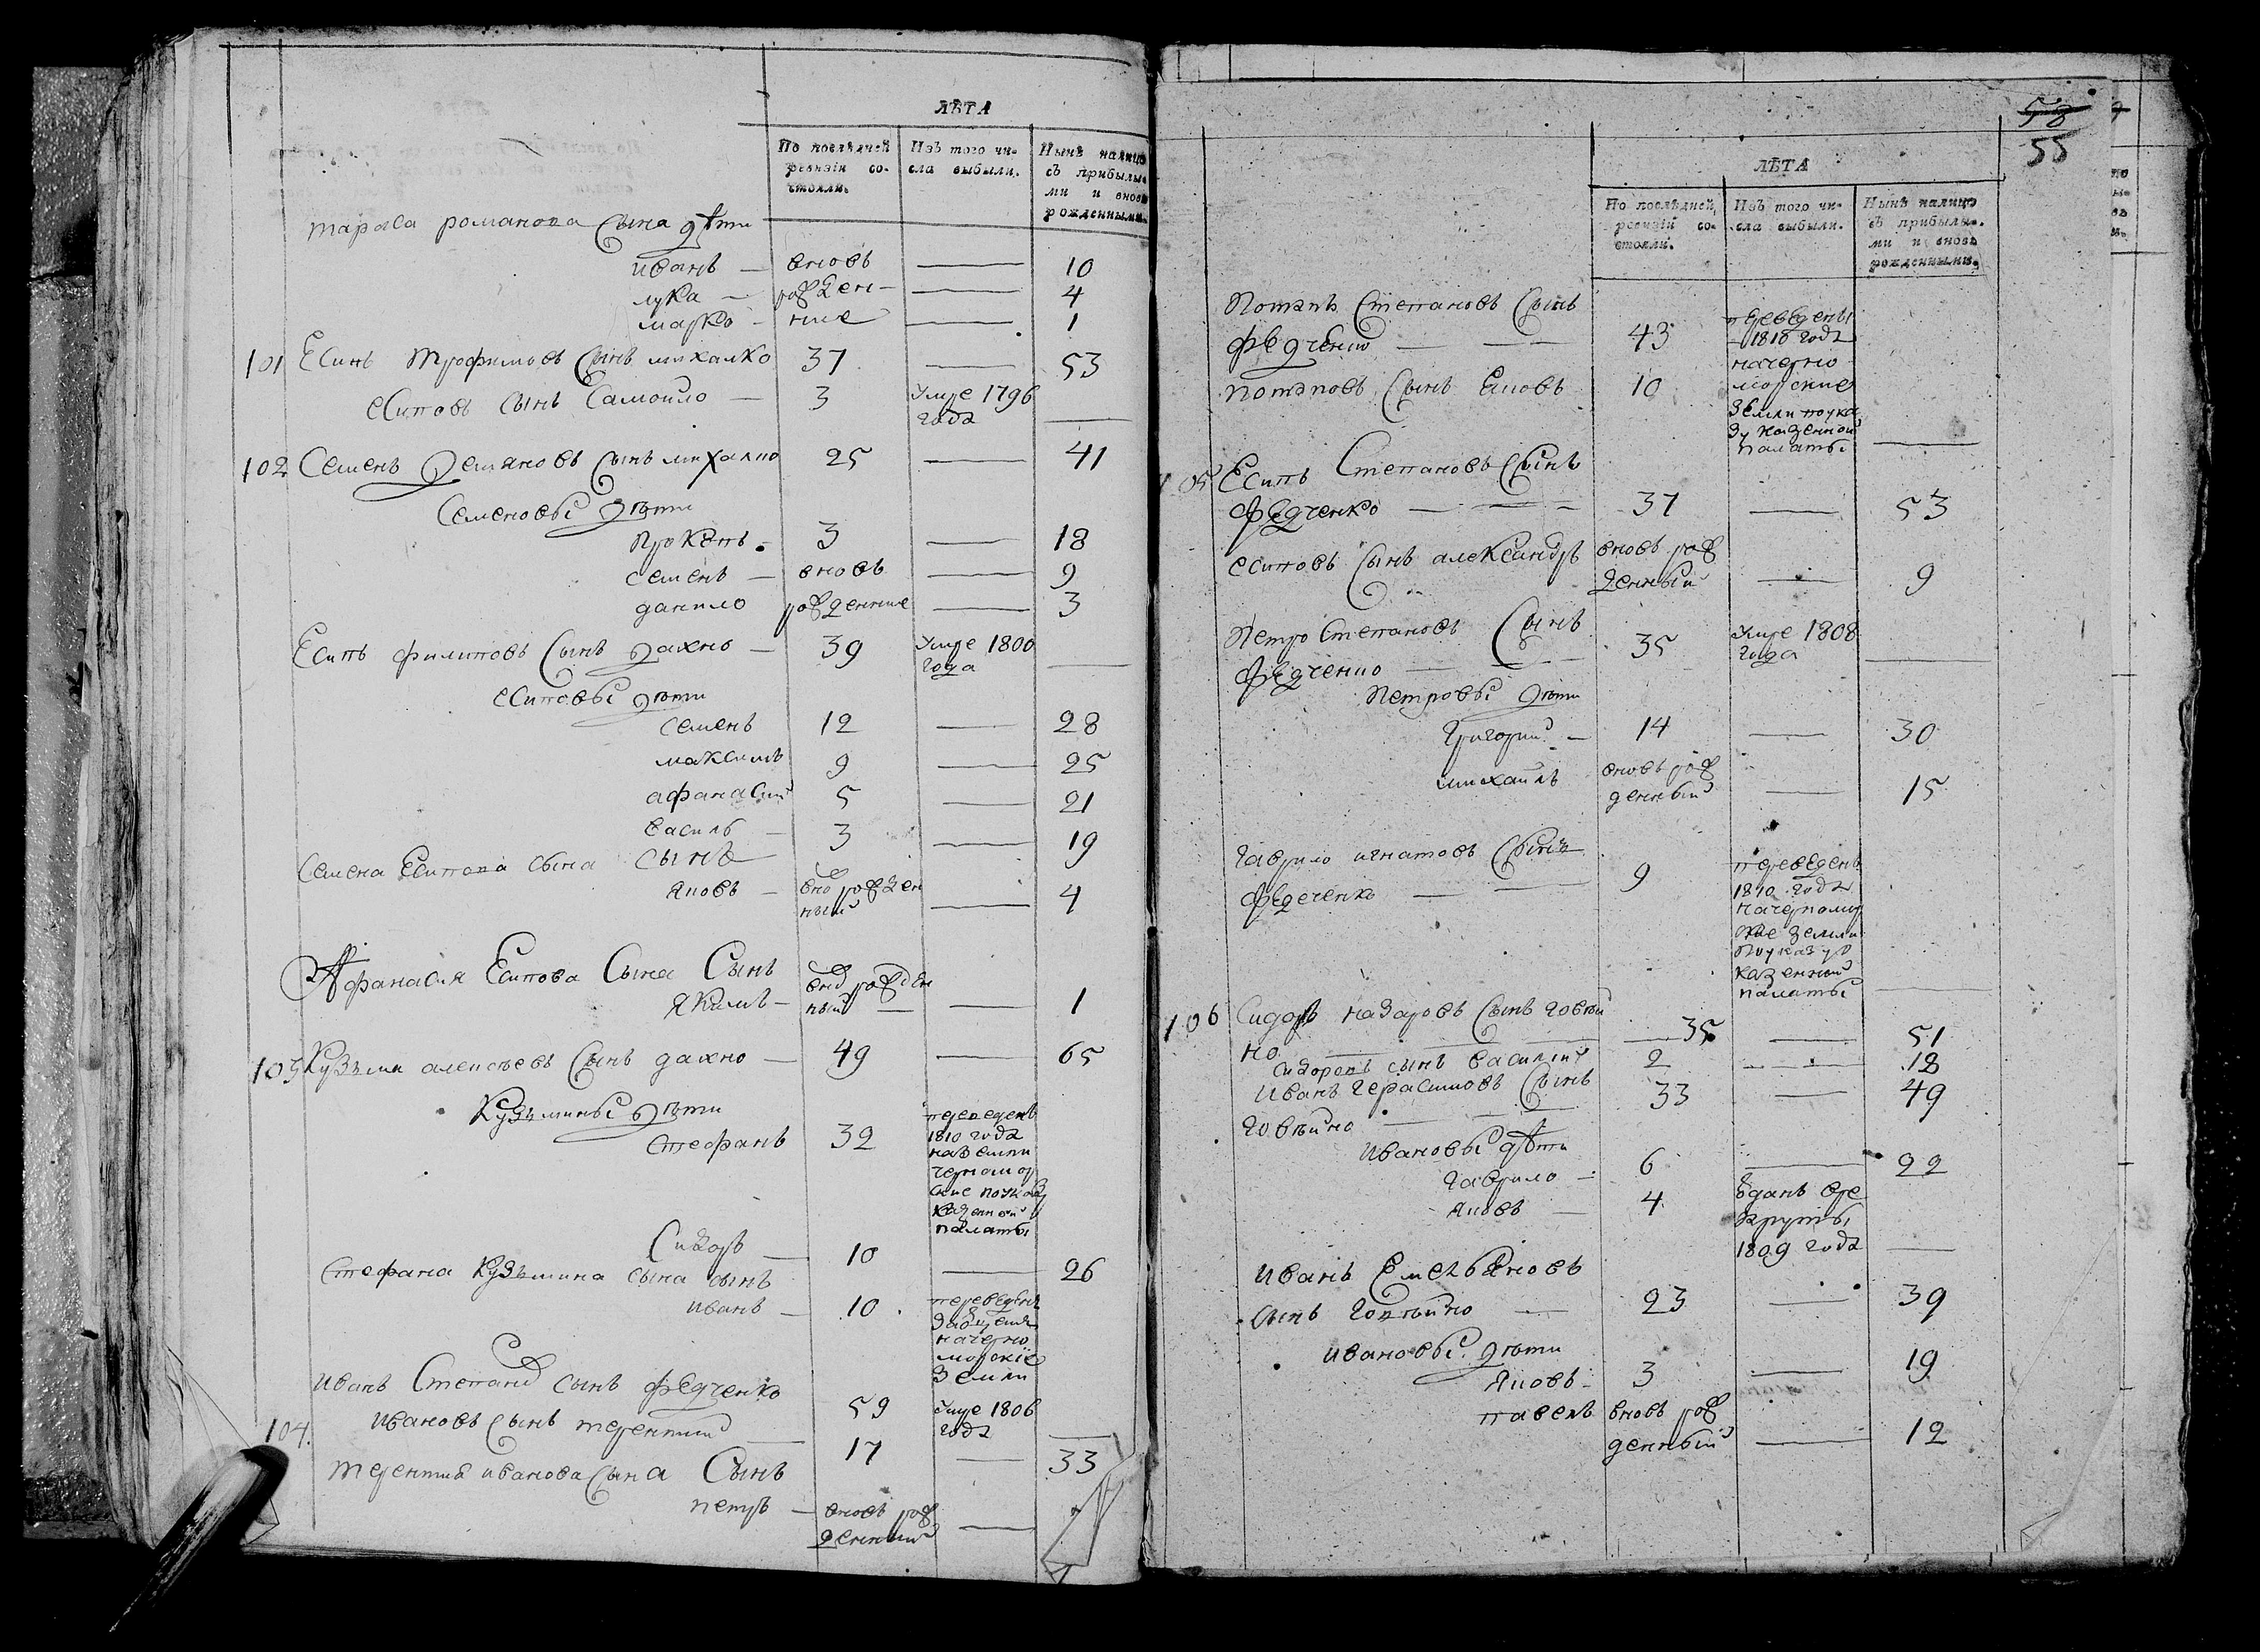 ЛѢТА
По послѣдней ревизіи состояли.
Изъ того числа выбыли.
Нынѣ налицо съ прибылыми и вновь рожденными.
тараса романова сына дѣти
иванъ — вновь — 10
лука — рожден — 4
марко — ные — 1
101 Есипъ трофимовъ сынъ михалко 37 — 53
есиповъ сынъ Самойло — 3 Умре 1796
года —
102 Семенъ Демяновъ сынъ михално 25 — 41
Семеновы дѣти
Прокопъ 3 — 18
семенъ — вновь — 9
данило рожденные — 3
Есипъ филиповъ сынъ дахно — 39 Умре 1800
года —
есиповы дѣти
семенъ 12 — 28
максимъ 9 — 25
афанасий 5 — 21
василь — 3 — 19
Семена Есипова сына сынъ
яковъ — вно рожден
ный — 4
Афанасия Есипова Сына Сынъ
якимъ — вно рожден
ный — 1
103 Кузьма алексѣевъ сынъ дахно — 49 — 65
Кузьмины дѣти
стефанъ 32 переведенъ
1810 года
на земли
черномор
ские по указу
казенной
палаты
Сидоръ — 10 — 26
Стефана Кузьмина сына сынъ
иванъ — 10 переведенъ
на черно
морские
земли
104. иванъ Степановъ сынъ федченко 59 Умре 1806
года —
ивановъ сынъ терентий — 17 — 33
терентия иванова сына Сынъ
петръ — вновь рож
денный —
58
55
ЛѢТА
По послѣдней ревизіи состояли.
Изъ того числа выбыли.
Нынѣ налицо съ прибылыми и вновь рожденными.
Потапъ Степановъ Сынъ
федченко — 43 переведены
1810 года
на черно
морские
земли по ука
зу казенной
палаты —
потаповъ сынъ Яковъ 10
105 Есипъ Степановъ Сынъ
федченко — 37 — 53
есиповъ сынъ александръ вновь рож
денный — 9
Петро Степановъ Сынъ
федченко — 35 Умре 1808
года —
Петровы дѣти
Григорий — 14 — 30
михаилъ вновь рож
денный — 15
Гаврило игнатовъ Сынъ
федченко — 9 переведенъ
1810 года
на черномор
ские земли
по указу
казенной
палаты —
106 Сидоръ назаровъ сынъ говѣй
но — 35 — 51
сидоровъ сынъ василий 2 — 18
иванъ герасимовъ сынъ
говѣйно — 33 — 49
ивановы дѣти
гаврило — 6 — 22
яковъ — 4 вданъ вре
круты
1809 года —
иванъ Емельяновъ
сынъ говѣйно — 23 — 39
ивановы дѣти
яковъ — 3 — 19
павелъ вновь рож
денный — 12